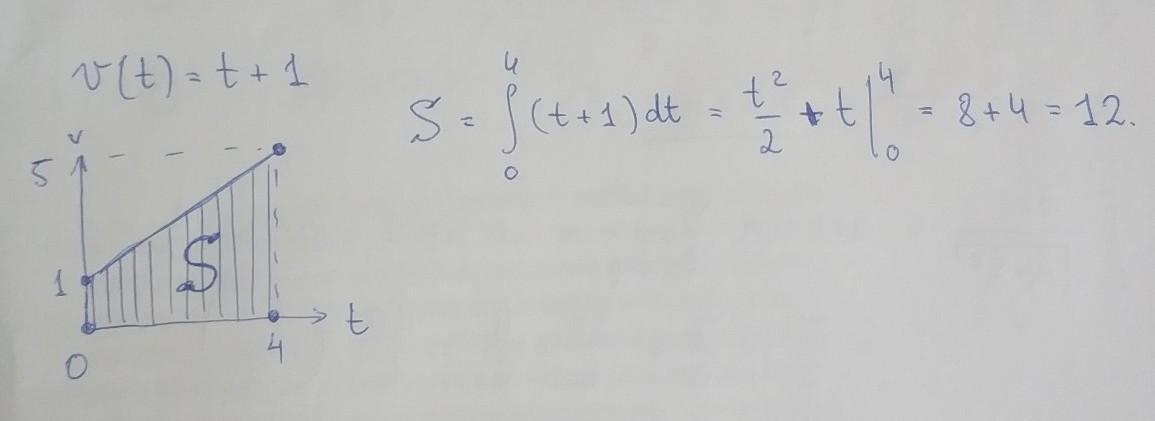 v(t) = t + 1
S = ∫₀⁴ (t + 1) dt = t²/2 + t |₀⁴ = 8 + 4 = 12.
v
5
S
1
t
0
4